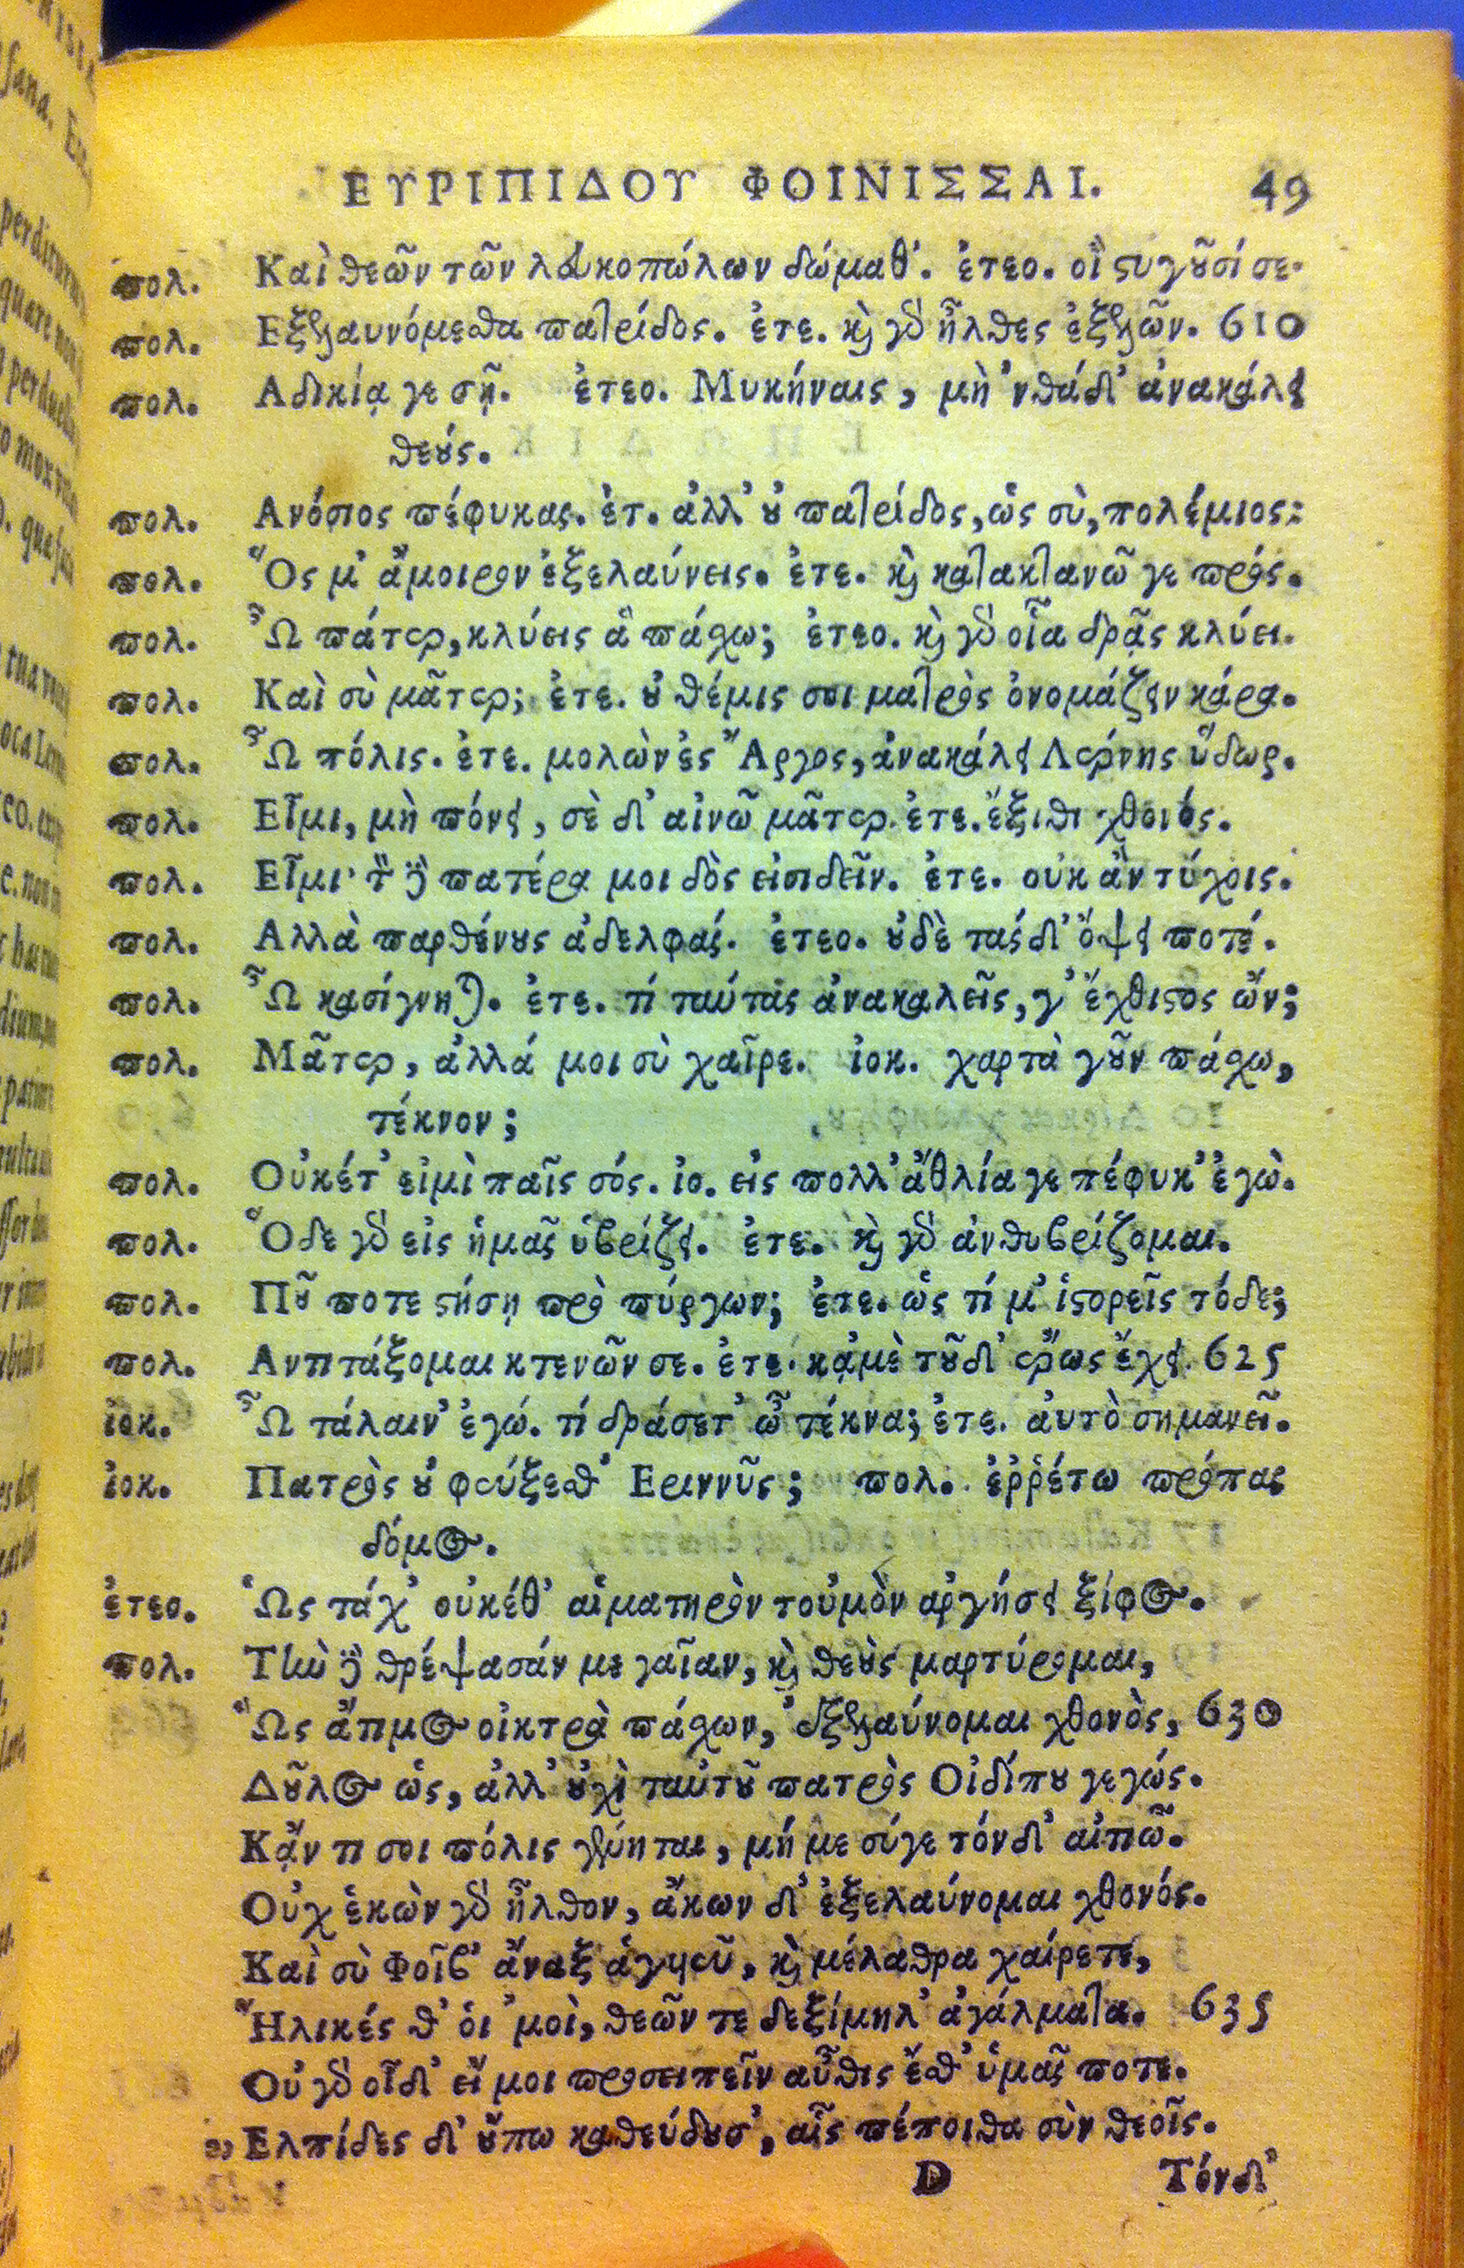 ΕΥΡΙΠΙΔΟΥ ΦΟΙΝΙΣΣΑΙ. 49
πολ. Καὶ θεῶν τῶν λευκοπώλων δώμαθ'. ἐτεο. οἳ ςυγοῦσί σε.
πολ. Εξελαυνόμεσθα πατρίδος. ἐτε. καὶ γὰρ ἦλθες ἐξελῶν. 610
πολ. Αδικίᾳ γε σῇ. ἐτεο. Μυκήναις, μὴ 'νθάδ' ἀνακάλει
θεούς.
πολ. Ανόσιος πέφυκας. ἐτ. ἀλλ' οὐ πατρίδος, ὡς σὺ, πολέμιος:
πολ. Ὅς μ' ἄμοιρον ἐξελαύνεις. ἐτε. καὶ κατακτανῶ γε πρός.
πολ. Ὦ πάτερ, κλύεις ἃ πάσχω; ἐτεο. καὶ γὰρ οἷα δρᾷς κλύει.
πολ. Καὶ σὺ μᾶτερ; ἐτε. οὐ θέμις σοι ματρὸς ὀνομάζειν κάρα.
πολ. Ὦ πόλις. ἐτε. μολὼν ἐς Ἄργος, ἀνακάλει Λέρνης ὕδωρ.
πολ. Εἶμι, μὴ πόνει, σὲ δ' αἰνῶ μᾶτερ. ἐτε. ἔξιθι χθονός.
πολ. Εἶμι· τὸν δὲ πατέρα μοι δὸς εἰσιδεῖν. ἐτε. οὐκ ἂν τύχοις.
πολ. Αλλὰ παρθένους ἀδελφάς. ἐτεο. οὐδὲ τάσδ' ὄψει ποτέ.
πολ. Ὦ κασίγνηται. ἐτε. τί ταύτας ἀνακαλεῖς, γ' ἔχθιςος ὤν;
πολ. Μᾶτερ, ἀλλά μοι σὺ χαῖρε. ἰοκ. χαρτὰ γοῦν πάσχω,
τέκνον;
πολ. Οὐκέτ' εἰμὶ παῖς σός. ἰο. εἰς πολλ' ἀθλία γε πέφυκ' ἐγώ.
πολ. Ὅδε γὰρ εἰς ἡμᾶς ὑβρίζει. ἐτε. καὶ γὰρ ἀνθυβρίζομαι.
πολ. Ποῦ ποτε ςήσῃ πρὸ πύργων; ἐτε. ὡς τί μ' ἱςορεῖς τόδε;
πολ. Αντιτάξομαι κτενῶν σε. ἐτε. κᾀμὲ τοῦδ' ἔρως ἔχει. 625
ἰοκ. Ὦ τάλαιν' ἐγώ. τί δράσετ' ὦ τέκνα; ἐτε. αὐτὸ σημανεῖ.
ἰοκ. Πατρὸς οὐ φεύξεσθ' Εριννῦς; πολ. ἐῤῥέτω πρόπας
δόμος.
ἐτεο. Ὡς τάχ' οὐκέθ' αἱματηρὸν τοὐμὸν ἀργήσει ξίφος.
πολ. Τὴν δὲ θρέψασάν με γαῖαν, καὶ θεοὺς μαρτύρομαι,
Ὡς ἄτιμος οἰκτρὰ πάσχων, ἐξελαύνομαι χθονὸς, 630
Δοῦλος ὡς, ἀλλ' οὐχὶ ταὐτοῦ πατρὸς Οἰδίπου γεγώς.
Κἄν τι σοι πόλις γένηται, μή με σύγε τόνδ' αἰτιῶ.
Οὐχ ἑκὼν γὰρ ἦλθον, ἄκων δ' ἐξελαύνομαι χθονός.
Καὶ σὺ Φοῖβ' ἄναξ ἀγυιεῦ, καὶ μέλαθρα χαίρετε,
Ἥλικές θ' οἱ 'μοὶ, θεῶν τε δεξίμηλ' ἀγάλματα. 635
Οὐ γὰρ οἶδ' εἴ μοι προσειπεῖν αὖθις ἔσθ' ὑμᾶς ποτε.
Ελπίδες δ' οὔπω καθεύδουσ', αἷς πέποιθα σὺν θεοῖς.
D Τόνδ'